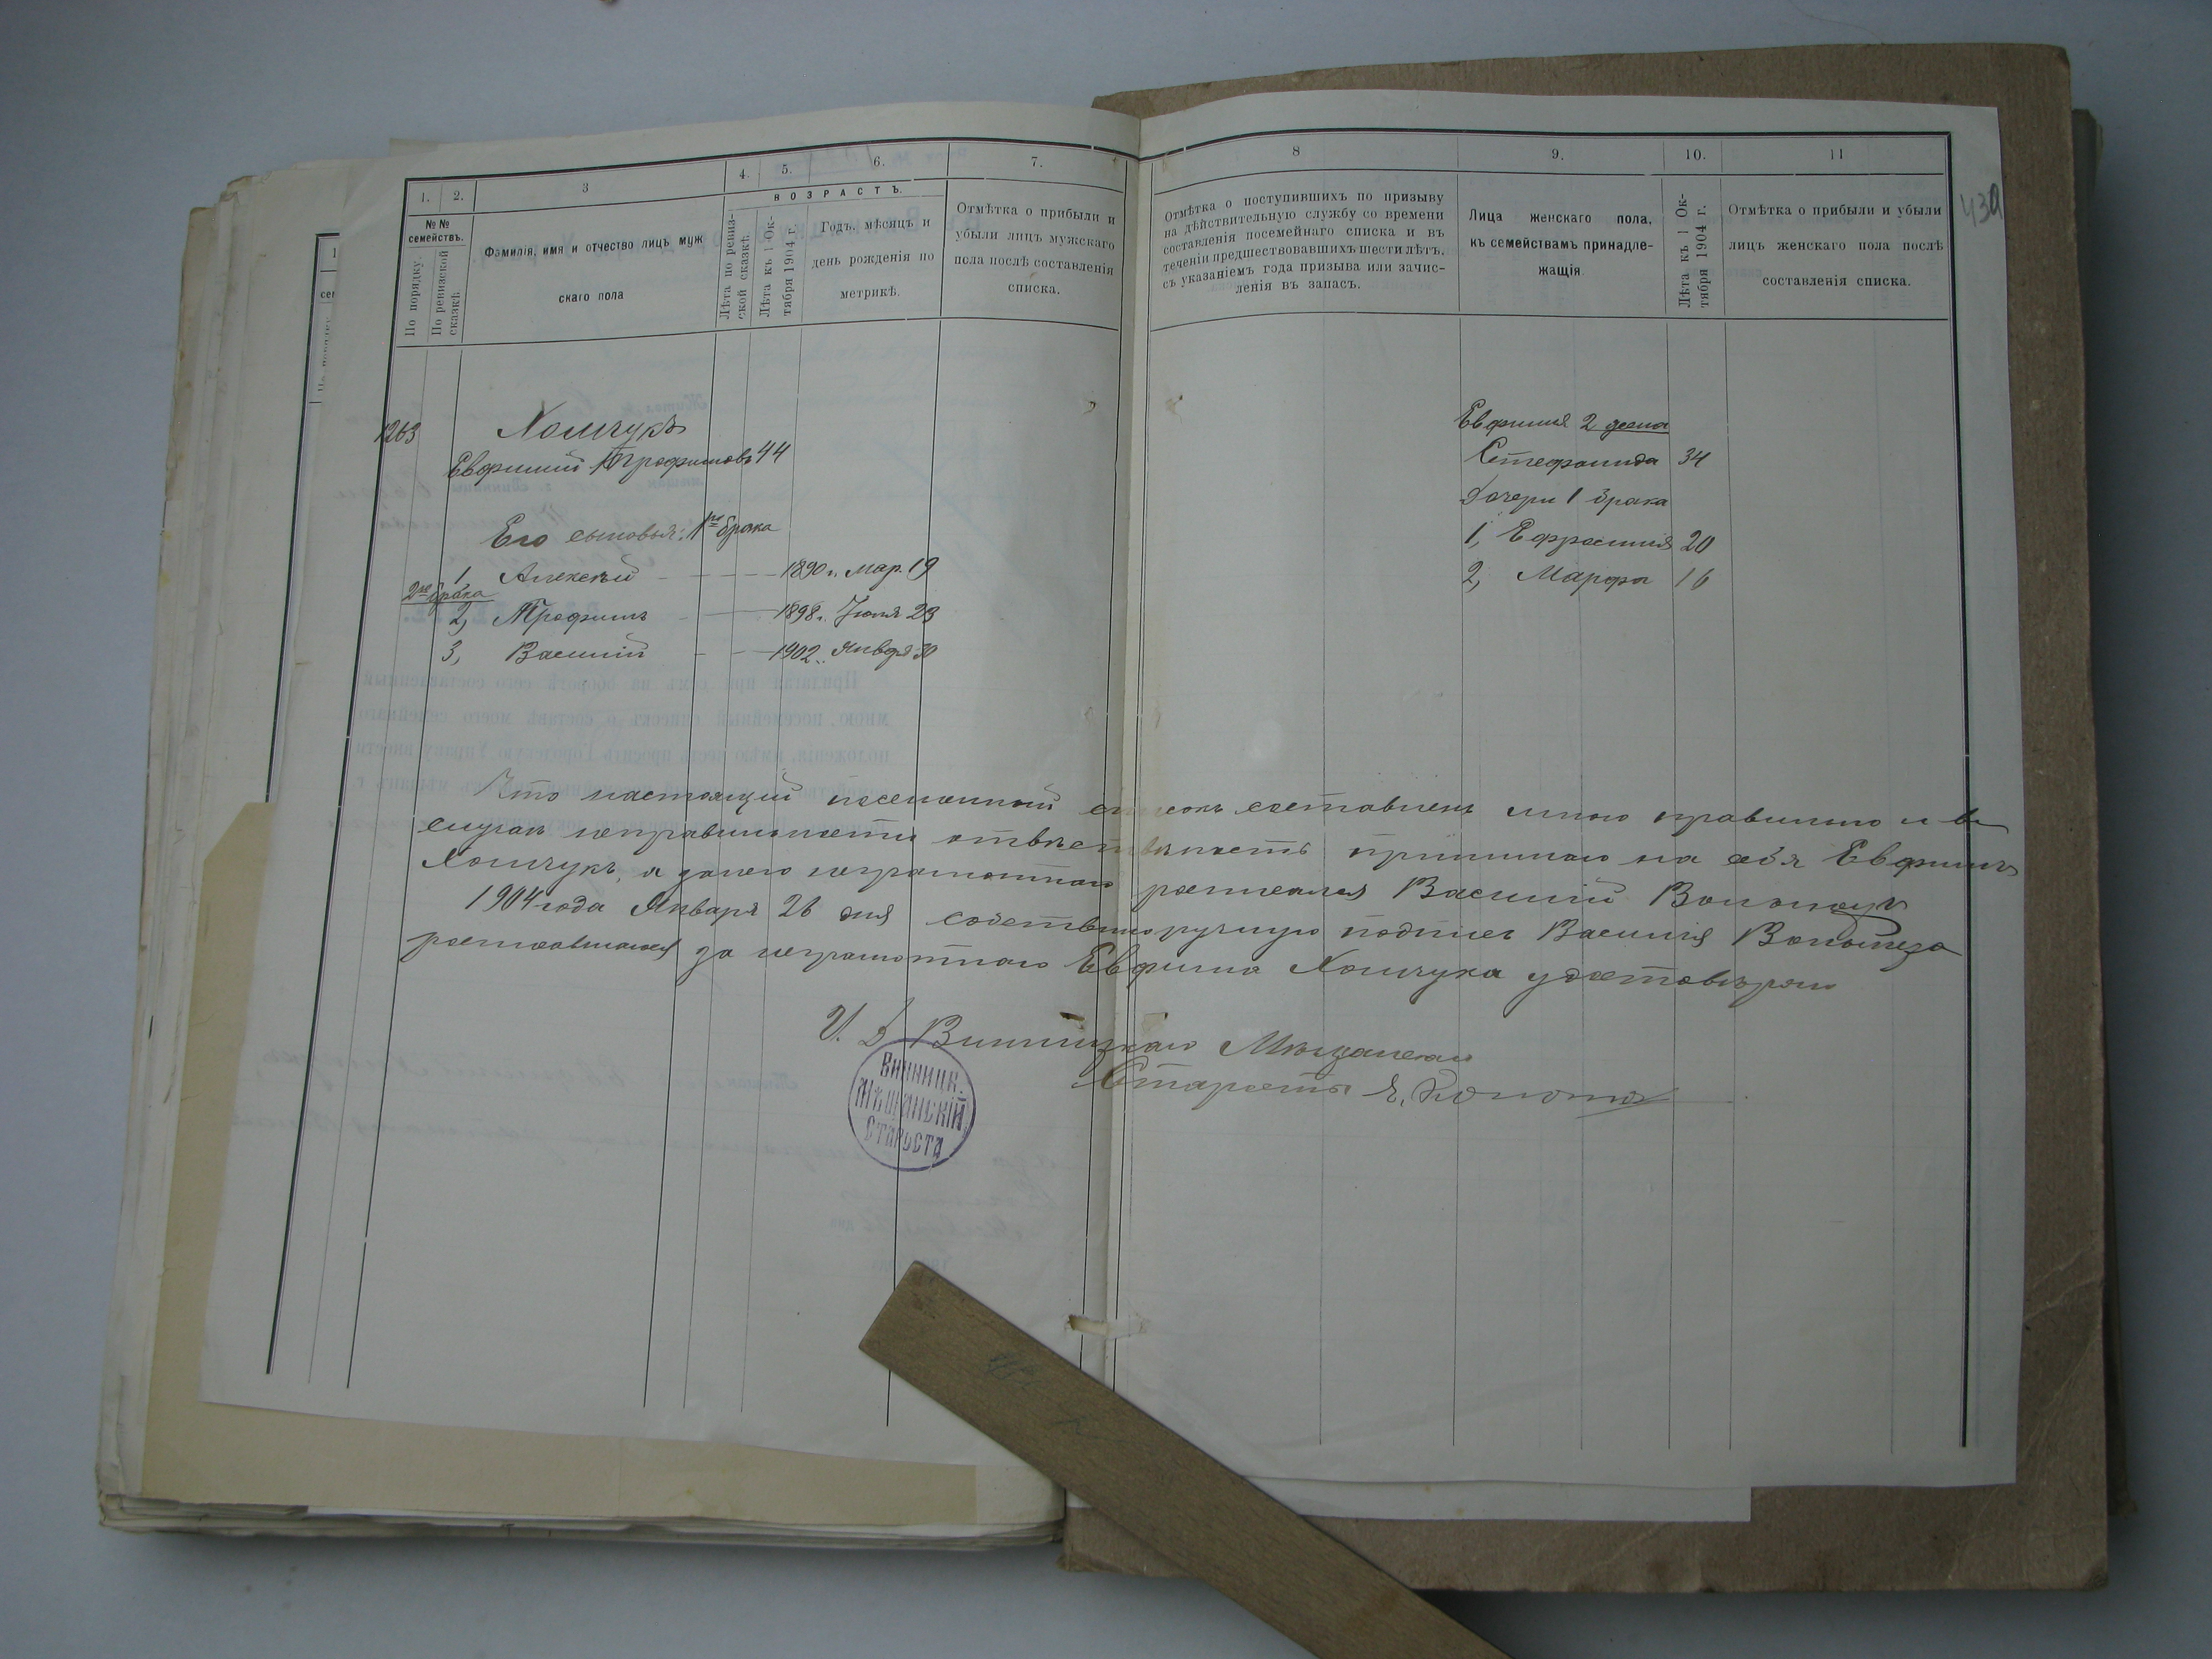 439
1.
2.
3
4.
5.
6.
7.
8
9.
10.
11
№ №
семействъ.
По порядку.
По ревизской
сказкѣ.
Фамилія, имя и отчество лицъ муж
скаго пола
ВОЗРАСТЪ.
Лѣта по ревиз-
ской сказкѣ.
Лѣта къ 1 Ок-
тября 1904 г.
Годъ, мѣсяцъ и
день рожденія по
метрикѣ.
Отмѣтка о прибыли и
убыли лицъ мужскаго
пола послѣ составленія
списка.
Отмѣтка о поступившихъ по призыву
на дѣйствительную службу со времени
составленія посемейнаго списка и въ
теченіи предшествовавшихъ шести лѣтъ,
съ указаніемъ года призыва или зачис-
ленія въ запасъ.
Лица женскаго пола,
къ семействамъ принадле-
жащія.
Лѣта къ 1 Ок-
тября 1904 г.
Отмѣтка о прибыли и убыли
лицъ женскаго пола послѣ
составленія списка.
1263
Хомчукъ
Евфимий Трофимовъ 44
Его сыновья: 1го брака
1 Алексѣй 1890 г. Мар. 19
2го брака
2, Трофимъ 1898 г. Іюля 23
3, Василій 1902 Января 30
Евфимія 2 жена
Стефанида 34
Дочери 1 брака
1, Ефросинія 20
2, Марфа 16
Что настоящій посемейный списокъ составленъ мною правильно и въ
случаѣ неправильности отвѣтственность принимаю на себя Евфимъ
Хомчукъ, а за него неграмотнаго росписался Василій
1904 года Января 26 дня собственноручную подпись Василія
росписавшагося за неграмотнаго Евфима Хомчука удостовѣряю
И. Д. Винницкаго Мѣщанскаго
Старосты
Винницк.
Мѣщанскій
Староста